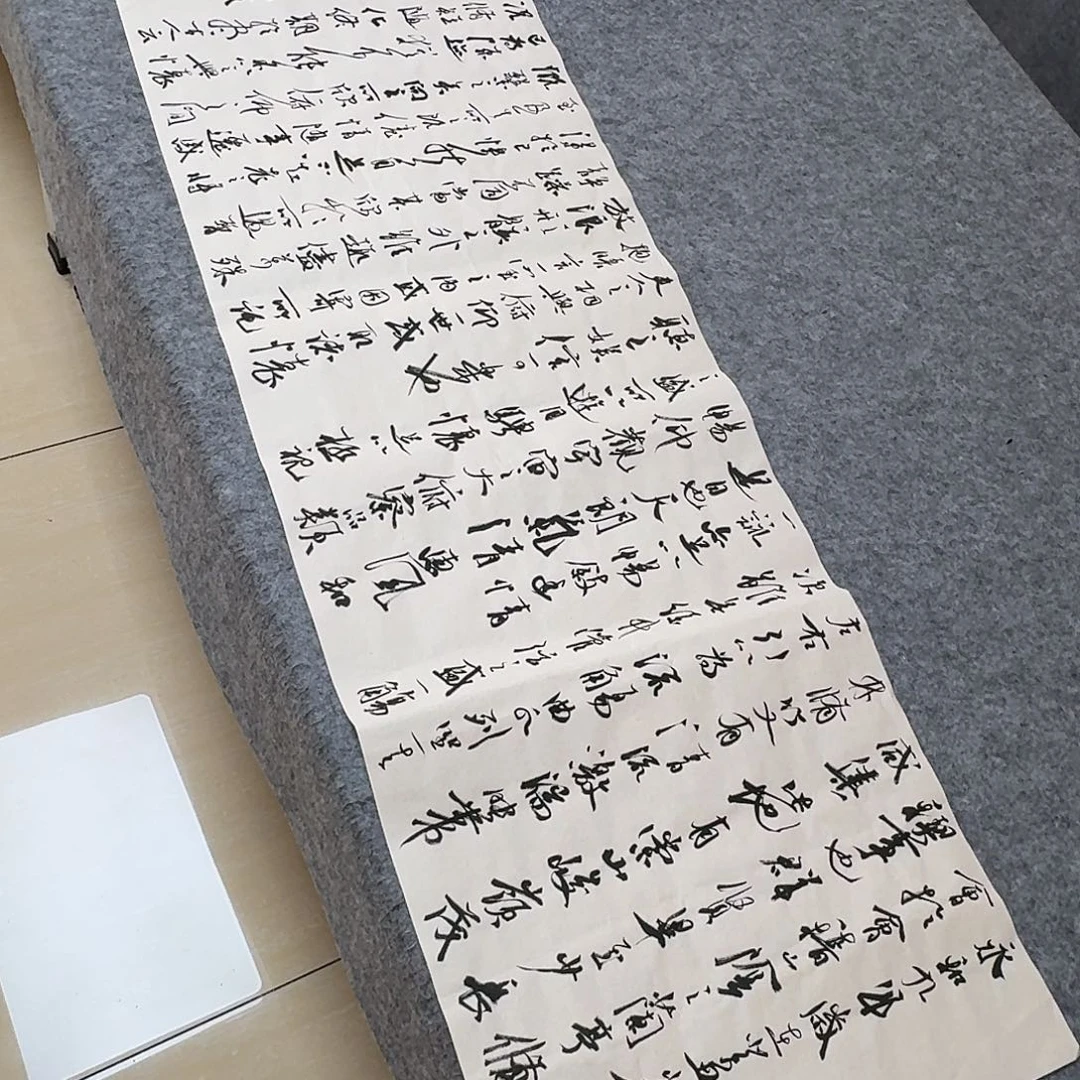 永和九年歲在癸丑暮
會於會稽山陰之蘭亭脩
禊事也群賢畢至少長
咸集此地有崇山峻領茂
林脩竹又有清流激湍映帶
左右引以為流觴曲水列坐其
次雖無絲竹管弦之盛一觴
一詠亦足以暢敘幽情
是日也天朗氣清惠風和
暢仰觀宇宙之大俯察品類
之盛所以遊目騁懷足以極視
聽之娛信可樂也
夫人之相與俯仰一世或取諸懷
抱悟言一室之內或因寄所託
放浪形骸之外雖趣舍萬殊
靜躁不同當其欣於所遇暫
得於己快然自足不知老之將
至及其所之既惓情隨事遷感
慨係之矣向之所欣俛仰之間
已為陳迹猶不能不以之興懷
況脩短隨化終期於盡古人云